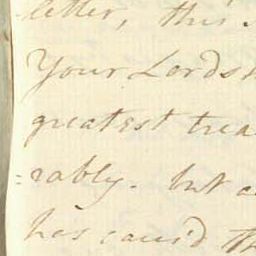 letter, this
Your Lords
greatest trea
=rably. but a
has caus'd th